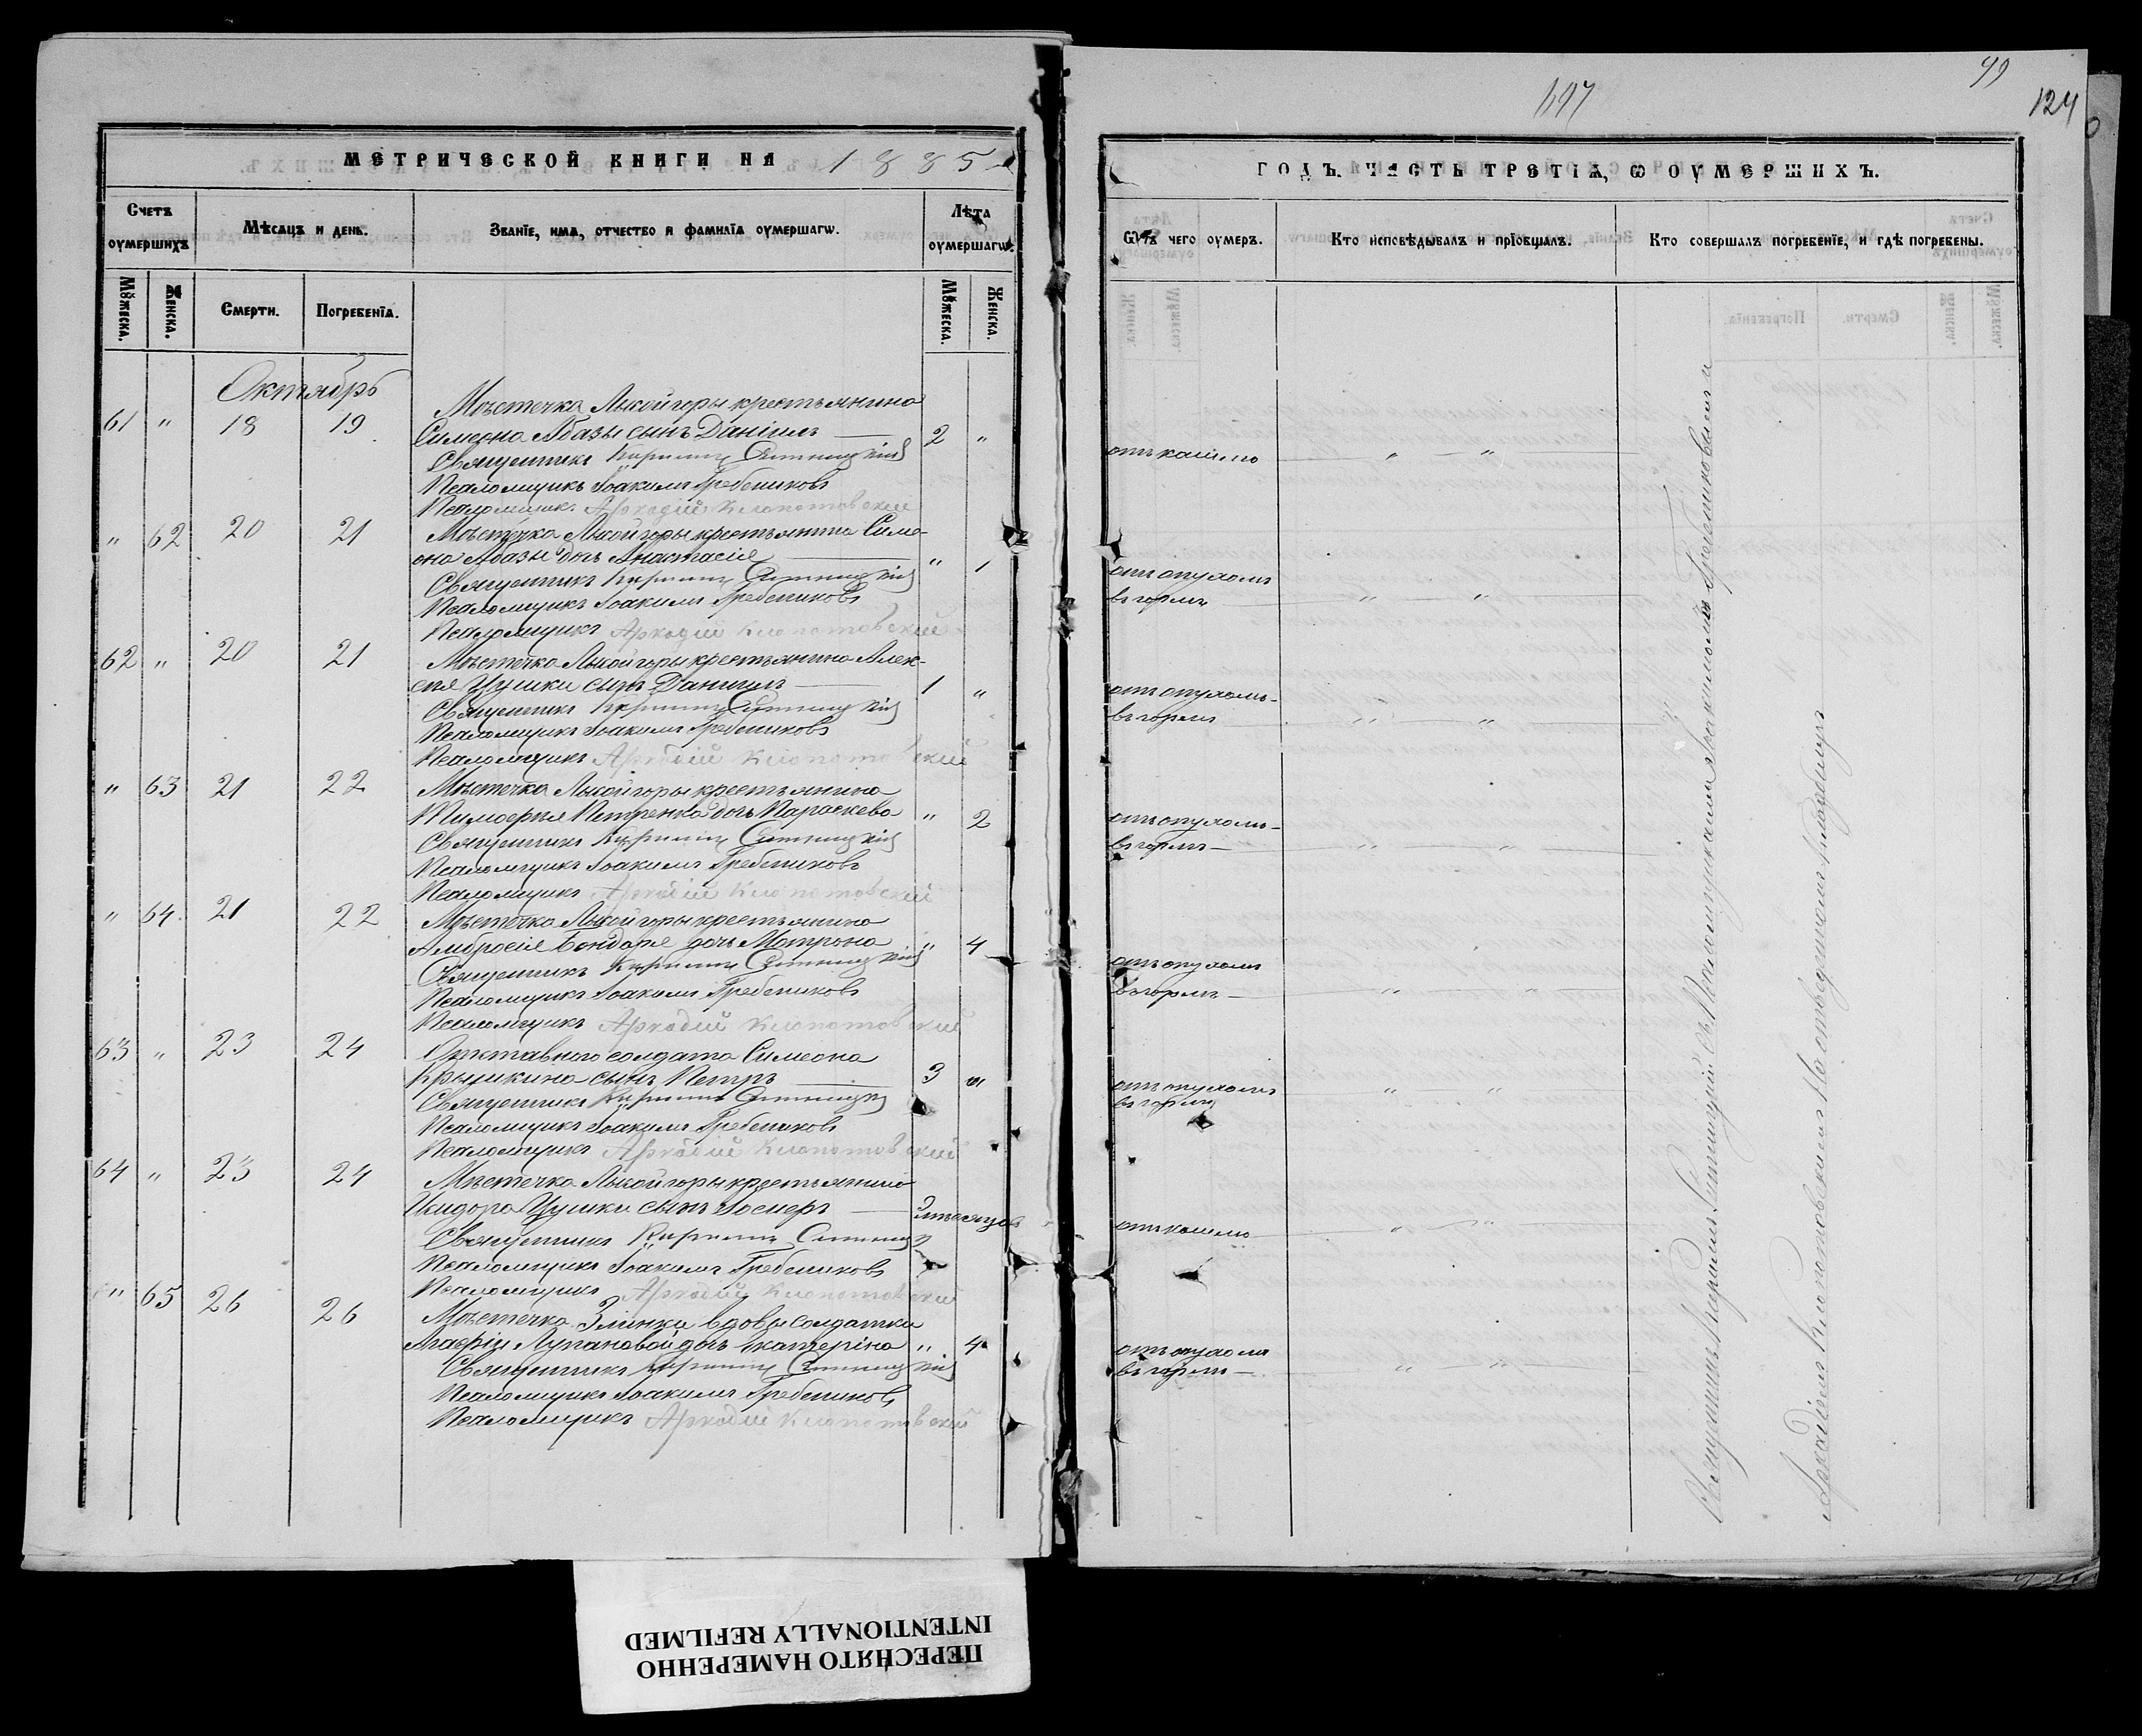 МЕТРИЧЕСКОЙ КНИГИ НА 1885
Счетъ оумершихъ
Мѣсяцъ и день.
Званїе, имѧ, отчество и фамилїа оумершагѡ.
Лѣта оумершагѡ.
Мꙋжеска.
Женска.
Смерти.
Погребенїѧ.
Мꙋжеска.
Женска.
Октябрь
61 " 18 19 Мѣстечка Лысой горы крестьянина
Симеона Абазы сынъ Даніилъ 2 "
Священникъ Кириллъ Ситницкій
Псаломщикъ Іоакимъ Гребениковъ
Псаломщикъ Аркадій Клопотовскій
" 62 20 21 Мѣстечка Лысой горы крестьянина Симе-
она Абазы дочь Анастасія " 1
Священникъ Кириллъ Ситницкій
Псаломщикъ Іоакимъ Гребениковъ
Псаломщикъ Аркадій Клопотовскій
62 " 20 21 Мѣстечка Лысой горы крестьянина Алек-
сея Цушки сынъ Даниилъ 1 "
Священникъ Кириллъ Ситницкій
Псаломщикъ Іоакимъ Гребениковъ
Псаломщикъ Аркадій Клопотовскій
" 63 21 22 Мѣстечка Лысой горы крестьянина
Тимофея Петренка дочь Параскева " 2
Священникъ Кириллъ Ситницкій
Псаломщикъ Іоакимъ Гребениковъ
Псаломщикъ Аркадій Клопотовскій
" 64. 21 22 Мѣстечка Лысой горы крестьянина
Амбросія Бондаря дочь Матрона " 4
Священникъ Кириллъ Ситницкій
Псаломщикъ Іоакимъ Гребениковъ
Псаломщикъ Аркадій Клопотовскій
63 " 23 24 Отставного солдата Симеона
Крышкина сынъ Петръ 3 "
Священникъ Кириллъ Ситницкі
Псаломщикъ Іоакимъ Гребениковъ
Псаломщикъ Аркадій Клопотовскій
64 " 23 24 Мѣстечка Лысой горы крестьянина
Исидора Цушки сынъ мѣсяцов
Священникъ Кириллъ
Псаломщикъ Іоакимъ Гребениковъ
Псаломщикъ Аркадій Клопотовскій
" 65 26 26 Мѣстечка Злинки вдовы солдатки
Агафіи Лупановой дочь Екатерина " 4
Священникъ Кириллъ Ситницкій
Псаломщикъ Іоакимъ Гребениковъ
Псаломщикъ Аркадій Клопотовскій
99
124
ГОДЪ. ЧАСТЬ ТРЕТІѦ, Ѡ ОУМЕРШИХЪ.
Ѿ чего оумеръ.
Кто исповѣдывалъ и прїобщалъ.
Кто совершалъ погребенїе, и гдѣ погребены.
отъ кашлю " "
отъ опухоли
въ горлѣ " "
отъ опухоли
въ горлѣ " "
отъ опухоли
въ горлѣ " "
отъ опухоли
въ горлѣ " "
отъ опухоли
въ горлѣ " "
отъ кашлю " "
отъ опухоли
въ горлѣ " "
Священникъ Кириллъ Ситницкій съ Псаломщиками Іоакимомъ Гребениковымъ и
Аркадіемъ Клопотовскимъ на кладбищѣ
ПЕРЕСНЯТО НАМЕРЕННО
INTENTIONALLY REFILMED